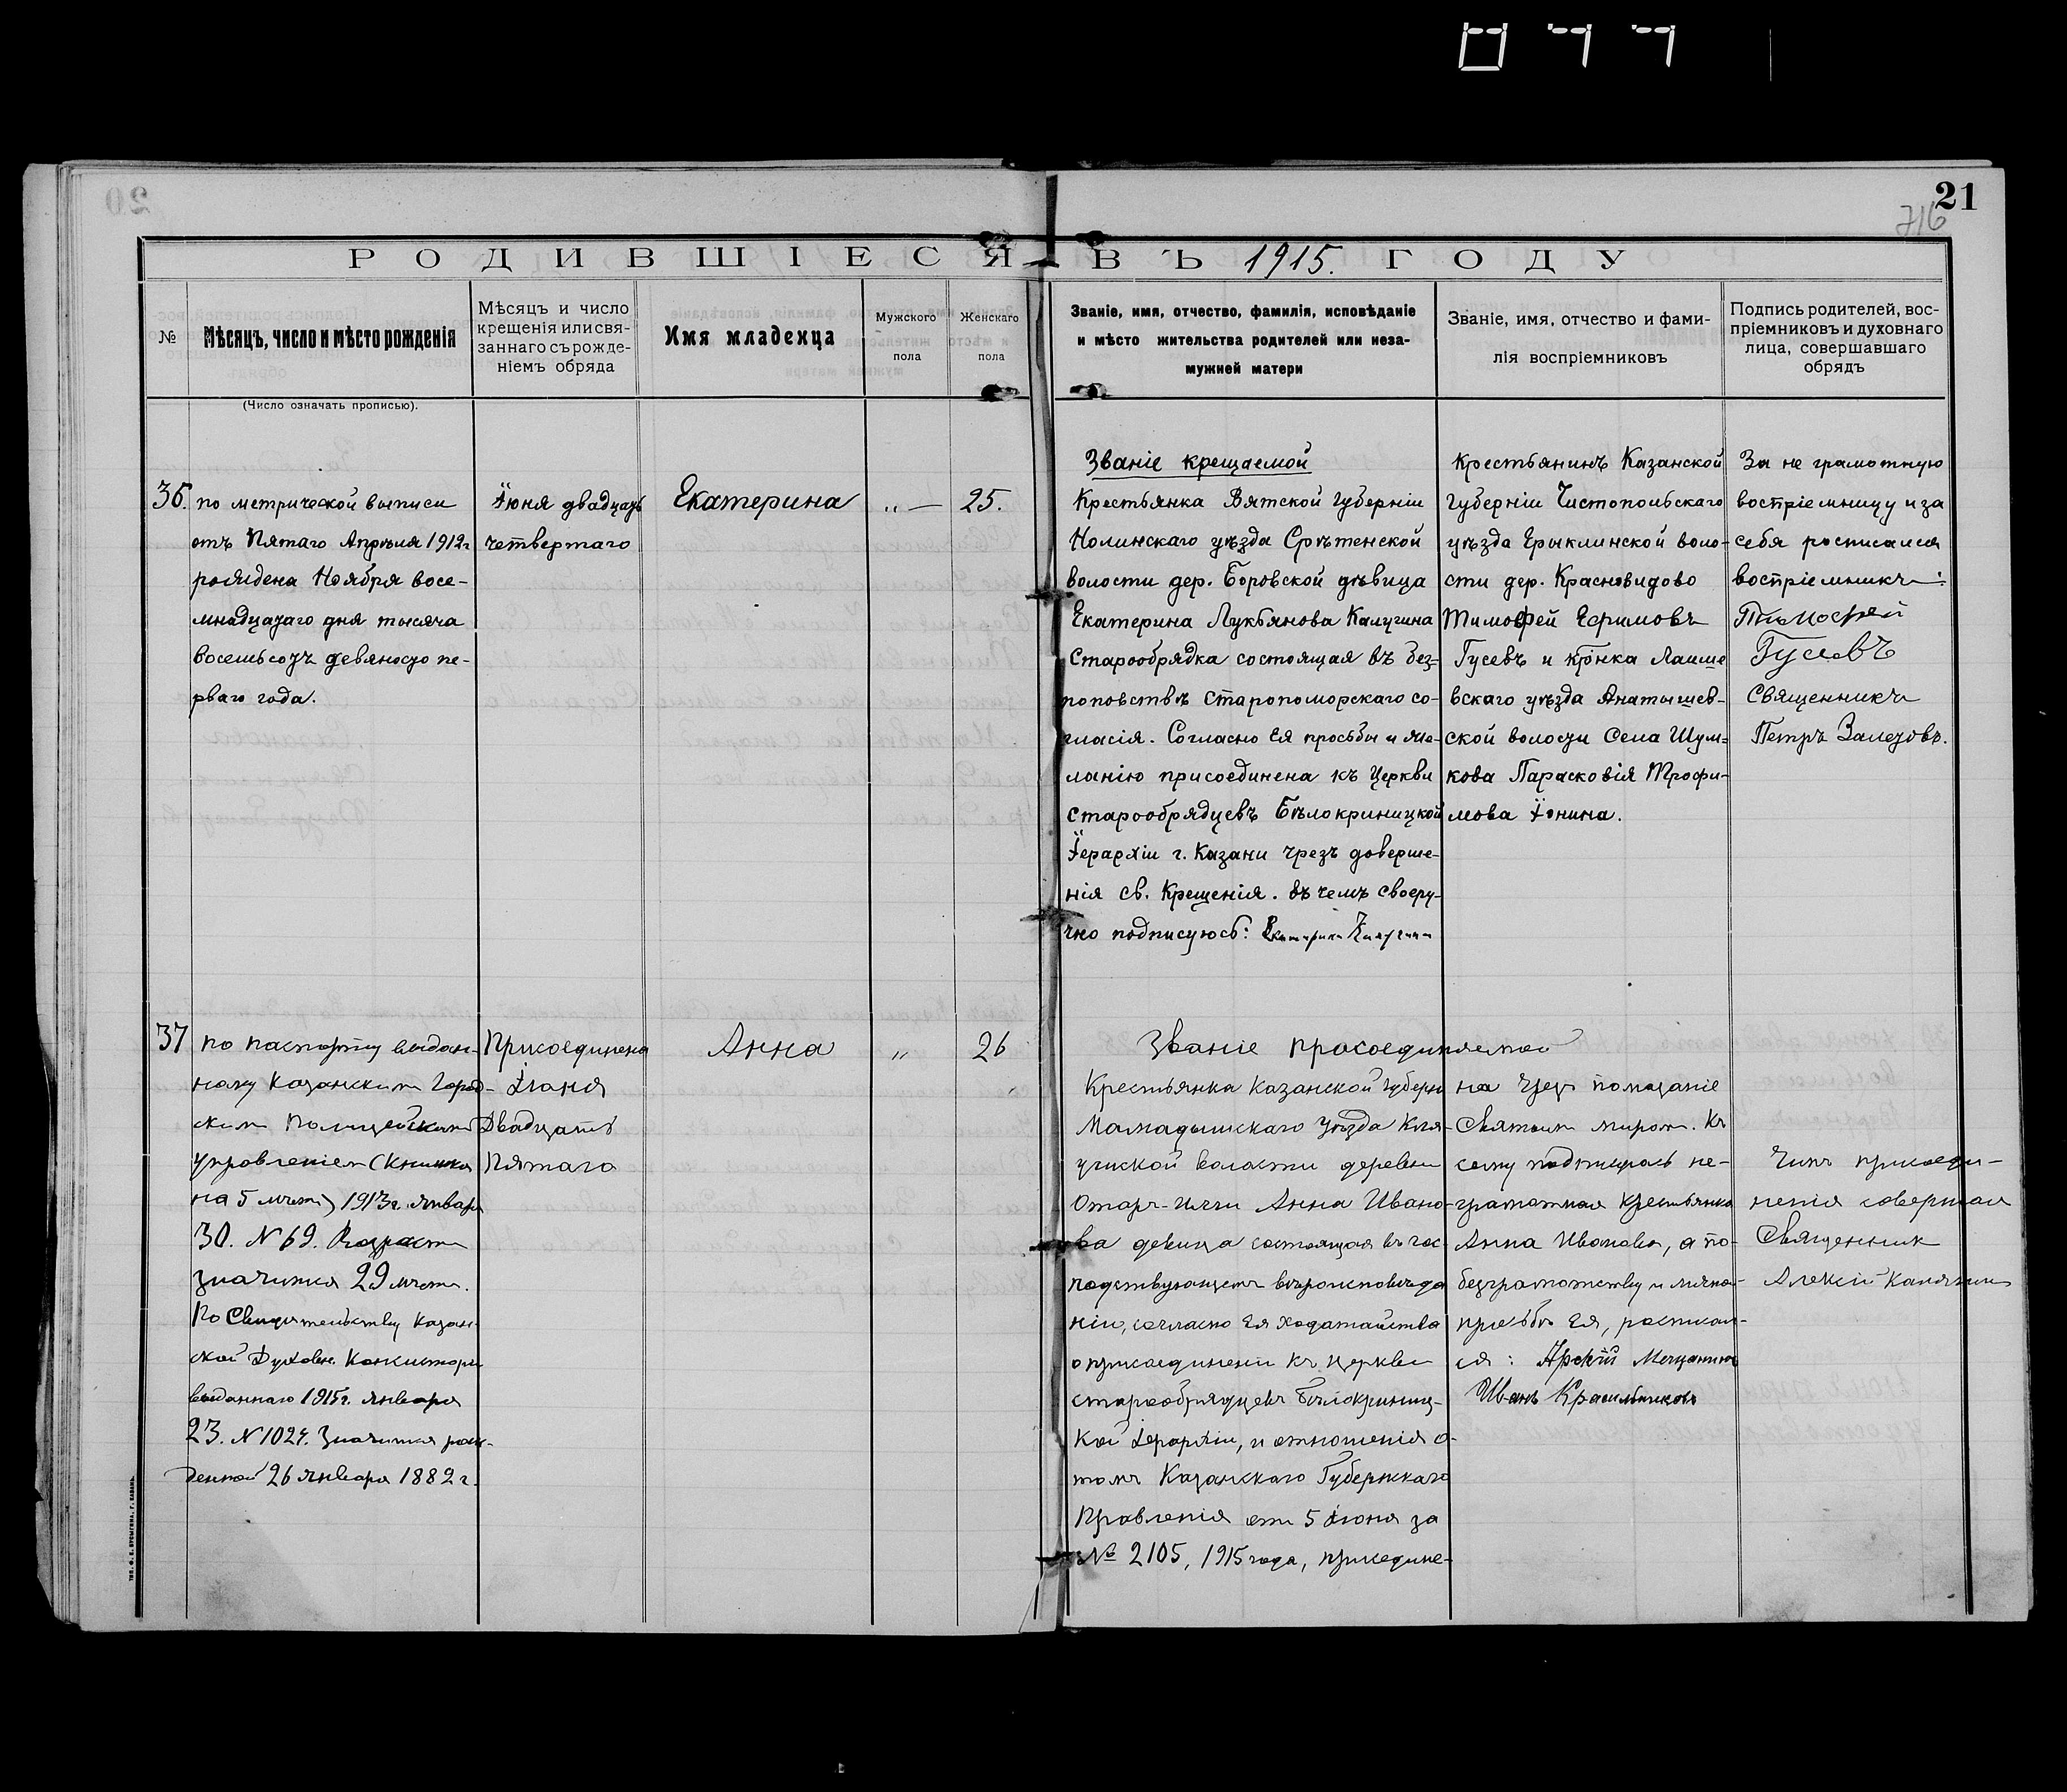 21
716
РОДИВШІЕСЯ ВЪ 1915. ГОДУ
№
Мѣсяцъ, число и мѣсто рожденія
(Число означать прописью).
Мѣсяцъ и число
крещенія или свя-
заннаго съ рожде-
ніемъ обряда
Имя младенца
Мужского
пола
Женскаго
пола
Званіе, имя, отчество, фамилія, исповѣданіе
и мѣсто жительства родителей или неза-
мужней матери
Званіе, имя, отчество и фами-
лія воспріемниковъ
Подпись родителей, вос-
пріемниковъ и духовнаго
лица, совершавшаго
обрядъ
36.
по метрической выписи
отъ Пятаго Апрѣля 1912г
рождена Ноября восе-
мнадцатаго дня тысяча
восемьсотъ девяносто пе-
рваго года.
Іюня двадцать
четвертаго
Екатерина
„ —
25.
Званіе крещаемой
Крестьянка Вятской Губерніи
Нолинскаго уѣзда Срѣтенской
волости дер. Боровской дѣвица
Екатерина Лукьянова Калугина
Старообрядка состоящая въ без-
поповствѣ Старопоморскаго со-
гласія. Согласно Ея просьбы и же-
ланію присоединена къ Церкви
Старообрядцевъ Бѣлокриницкой
Іерархіи г. Казани чрезъ доверше-
нія св. Крещенія. въ чемъ своеру-
чно подписуюсь: Екатерина Калугина
Крестьянинъ Казанской
Губерніи Чистопольскаго
уѣзда Ерыклинской воло-
сти дер. Красновидово
Тимофей Ефимовъ
Гусевъ и кр̃нка Лаише
вскаго уѣзда Анатышев-
ской волости Села Шум-
кова Парасковія Трофи-
мова Іонина.
За не грамотную
востріемницу и за
себя росписался
востріемникъ:
Тимофей
Гусевъ
Священникъ
Петръ Залетовъ.
37
по паспорту выдан-
ному Казанскимъ Город-
скимъ Полицейскимъ
управленіем (книжка
на 5 лѣтъ) 1913г. Января
30. N 69. Возрастъ
значится 29 лѣтъ.
По Свидѣтельству Казан-
ской Духовн. Консисторіи
выданнаго 1915г. Января
23. N 1024. Значится рож-
денной 26 Января 1882 г.
Присоединена
Іюня
Двадцать
Пятаго
Анна
„
26
Званіе присоединяемой
Крестьянка Казанской губерн
Мамадышскаго Уѣзда Кля-
ушской волости деревни
Отаръ- Анна Ивано-
ва девица состоящая въ гос-
подствующемъ вѣроисповѣда
ніи, согласно Ея Ходатайства
о присоединеніи къ церкви
старообрядцевъ Бѣлокриниц-
кой Іерархіи, и отношенія о-
томъ Казанскаго Губернскаго
Правленія отъ 5 Іюня за
№ 2105, 1915 года, присоедине-
на чрезъ помазаніе
Святымъ миромъ. Къ
сему подписуюсь не-
грамотная крестьянка
Анна Иванова, а по-
безграмотству и личной-
просьбѣ Ея, росписал-
ся: Мещанинъ
Иванъ Красильниковъ
Чинъ присоеди-
ненія совершал
Священник
Алексій Калягин